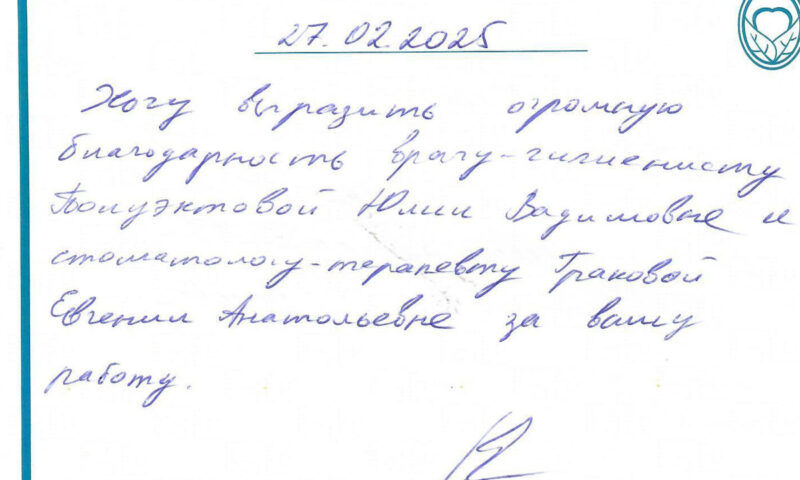 27.02.2025
Хочу выразить огромную
благодарность врачу-гигиенисту
Полуэктовой Юлии Вадимовне и
стоматологу-терапевту Граковой
Евгении Анатольевне за вашу
работу.